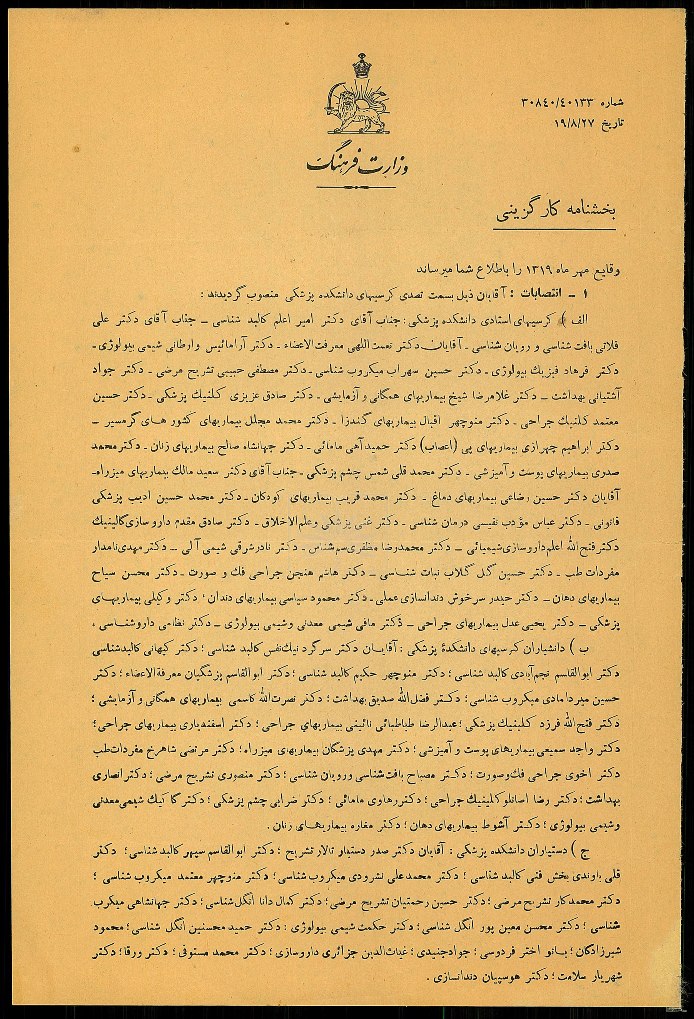 شماره ۳۰۸۴۰/۴۰۱۳۳
تاریخ ۱۹/۸/۲۷
وزارت فرهنگ
بخشنامه کارگزینی
وقایع مهر ماه ۱۳۱۹ را باطلاع شما میرساند
۱ ـ انتصابات : آقایان ذیل بسمت تصدی کرسیهای دانشکده پزشکی منصوب گردیدند :
الف ) کرسیهای استادی دانشکده پزشکی : جناب آقای دکتر امیر اعلم کالبد شناسی ـ جناب آقای دکتر علی
فلاتی بافت شناسی و رویان شناسی ـ آقایان دکتر نعمت اللهی معرفت الاعضاء ـ دکتر آرامائیس وارطانی شیمی بیولوژی ـ
دکتر فرهاد فیزیک بیولوژی ـ دکتر حسین سهراب میکروب شناسی ـ دکتر مصطفی حبیبی تشریح مرضی ـ دکتر جواد
آشتیانی بهداشت ـ دکتر غلامرضا شیخ بیماریهای همگانی و آزمایشی ـ دکتر صادق عزیزی کلنیک پزشکی ـ دکتر حسین
معتمد کلنیک جراحی ـ دکتر منوچهر اقبال بیماریهای گندزا ـ دکتر محمد مجلل بیماریهای کشور های گرمسیر ـ
دکتر ابراهیم چهرازی بیماریهای پی (اعصاب) دکتر حمید آهی مامائی ـ دکتر جهانشاه صالح بیماریهای زنان ـ دکتر محمد
صدری بیماریهای پوست و آمیزشی ـ دکتر محمد قلی شمس چشم پزشکی ـ جناب آقای دکتر سعید مالک بیماریهای میزراه ـ
آقایان دکتر حسین رضاعی بیماریهای دماغ ـ دکتر محمد قریب بیماریهای کودکان ـ دکتر محمد حسین ادیب پزشکی
قانونی ـ دکتر عباس مؤدب نفیسی درمان شناسی ـ دکتر غنی پزشکی و علم الاخلاق ـ دکتر صادق مقدم داروسازی گالینیک
دکتر فتح الله اعلم داروسازی شیمیائی ـ دکتر محمدرضا مظفری سم شناس ـ دکتر نادر شرقی شیمی آلی ـ دکتر مهدی نامدار
مفردات طب ـ دکتر حسین گل گلاب نبات شناسی ـ دکتر هاشم هنجن جراحی فک و صورت ـ دکتر محسن سیاح
بیماریهای دهان ـ دکتر حیدر سرخوش دندانسازی عملی ـ دکتر محمود سیاسی بیماریهای دندان ؛ دکتر وکیلی بیماریهای
پزشکی ـ دکتر یحیی عدل بیماریهای جراحی ـ دکتر مافی شیمی معدنی و شیمی بیولوژی ـ دکتر نظامی داروشناسی ،
ب ) دانشیاران کرسیهای دانشکدهٔ پزشکی : آقایان دکتر سرگرد نیک نفس کالبد شناسی ؛ دکتر کیهانی کالبدشناسی
دکتر ابوالقاسم نجم آبادی کالبد شناسی ؛ دکتر منوچهر حکیم کالبد شناسی ؛ دکتر ابوالقاسم پزشگیان معرفة الاعضاء ؛ دکتر
حسین میردامادی میکروب شناسی ؛ دکتر فضل الله صدیق بهداشت ؛ دکتر نصرت الله کاسمی بیماریهای همگانی و آزمایشی ؛
دکتر فتح الله فرزد کلینیک پزشکی ؛ عبدالرضا طباطبائی نائینی بیماریهای جراحی ؛ دکتر اسفندیاری بیماریهای جراحی ؛
دکتر واجد سمیعی بیماریهای پوست و آمیزشی ؛ دکتر مهدی پزشکان بیماریهای میزراه ؛ دکتر مرتضی شاهرخ مفردات طب
دکتر اخوی جراحی فک و صورت ؛ دکتر مصباح بافت شناسی و رویان شناسی ؛ دکتر منصوری تشریح مرضی ؛ دکتر انصاری
بهداشت ؛ دکتر رضا اصانلو کلینیک جراحی ؛ دکتر رهاوی مامائی ؛ دکتر ضرابی چشم پزشکی ؛ دکتر گاگیک شیمی معدنی
و شیمی بیولوژی ؛ دکتر آشوط بیماریهای دهان ؛ دکتر مغاره بیماریهای زنان .
ج ) دستیاران دانشکده پزشکی : آقایان دکتر صدر دستیار تالار تشریح ؛ دکتر ابوالقاسم سپهر کالبد شناسی ؛ دکتر
قلی باوندی بخش فنی کالبد شناسی ؛ دکتر محمدعلی نشرودی میکروب شناسی ؛ دکتر منوچهر معتمد میکروب شناسی ؛
دکتر محمدکار تشریح مرضی ؛ دکتر حسین رحمتیان تشریح مرضی ؛ دکتر کمال دانا انگل شناسی ؛ دکتر جهانشاهی میکرب
شناسی ؛ دکتر محسن معین پور انگل شناسی ؛ دکتر حکمت شیمی بیولوژی : دکتر حمید محسنین انگل شناسی ؛ محمود
شیرزادگان ؛ بانو اختر فردوسی ؛ جواد جنیدی ؛ غیاث الدین جزائری داروسازی ؛ دکتر محمد مستوفی ؛ دکتر ورقا ؛ دکتر
شهریار سلامت ؛ دکتر هوسپیان دندانسازی .